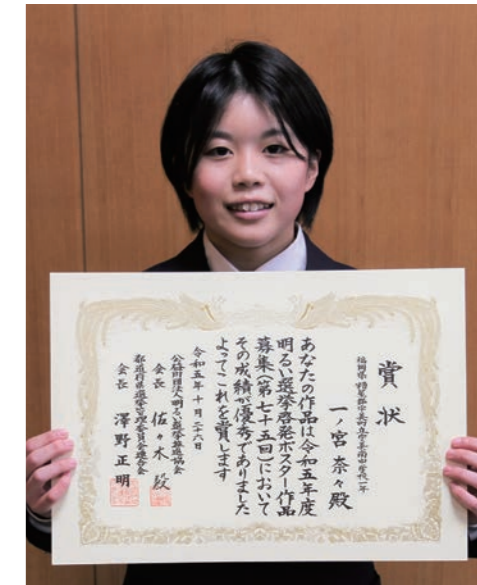 賞状
福岡県糟屋郡宇美町立宇美南中学校一年
一ノ宮奈々殿
あなたの作品は令和五年度
明るい選挙啓発ポスター作品
募集(第七十五回)において
その成績が優秀でありました
よってこれを賞します
令和五年十月二十六日
公益財団法人明るい選挙推進協会
会長 佐々木毅
都道府県選挙管理委員会連合会
会長 澤野正明